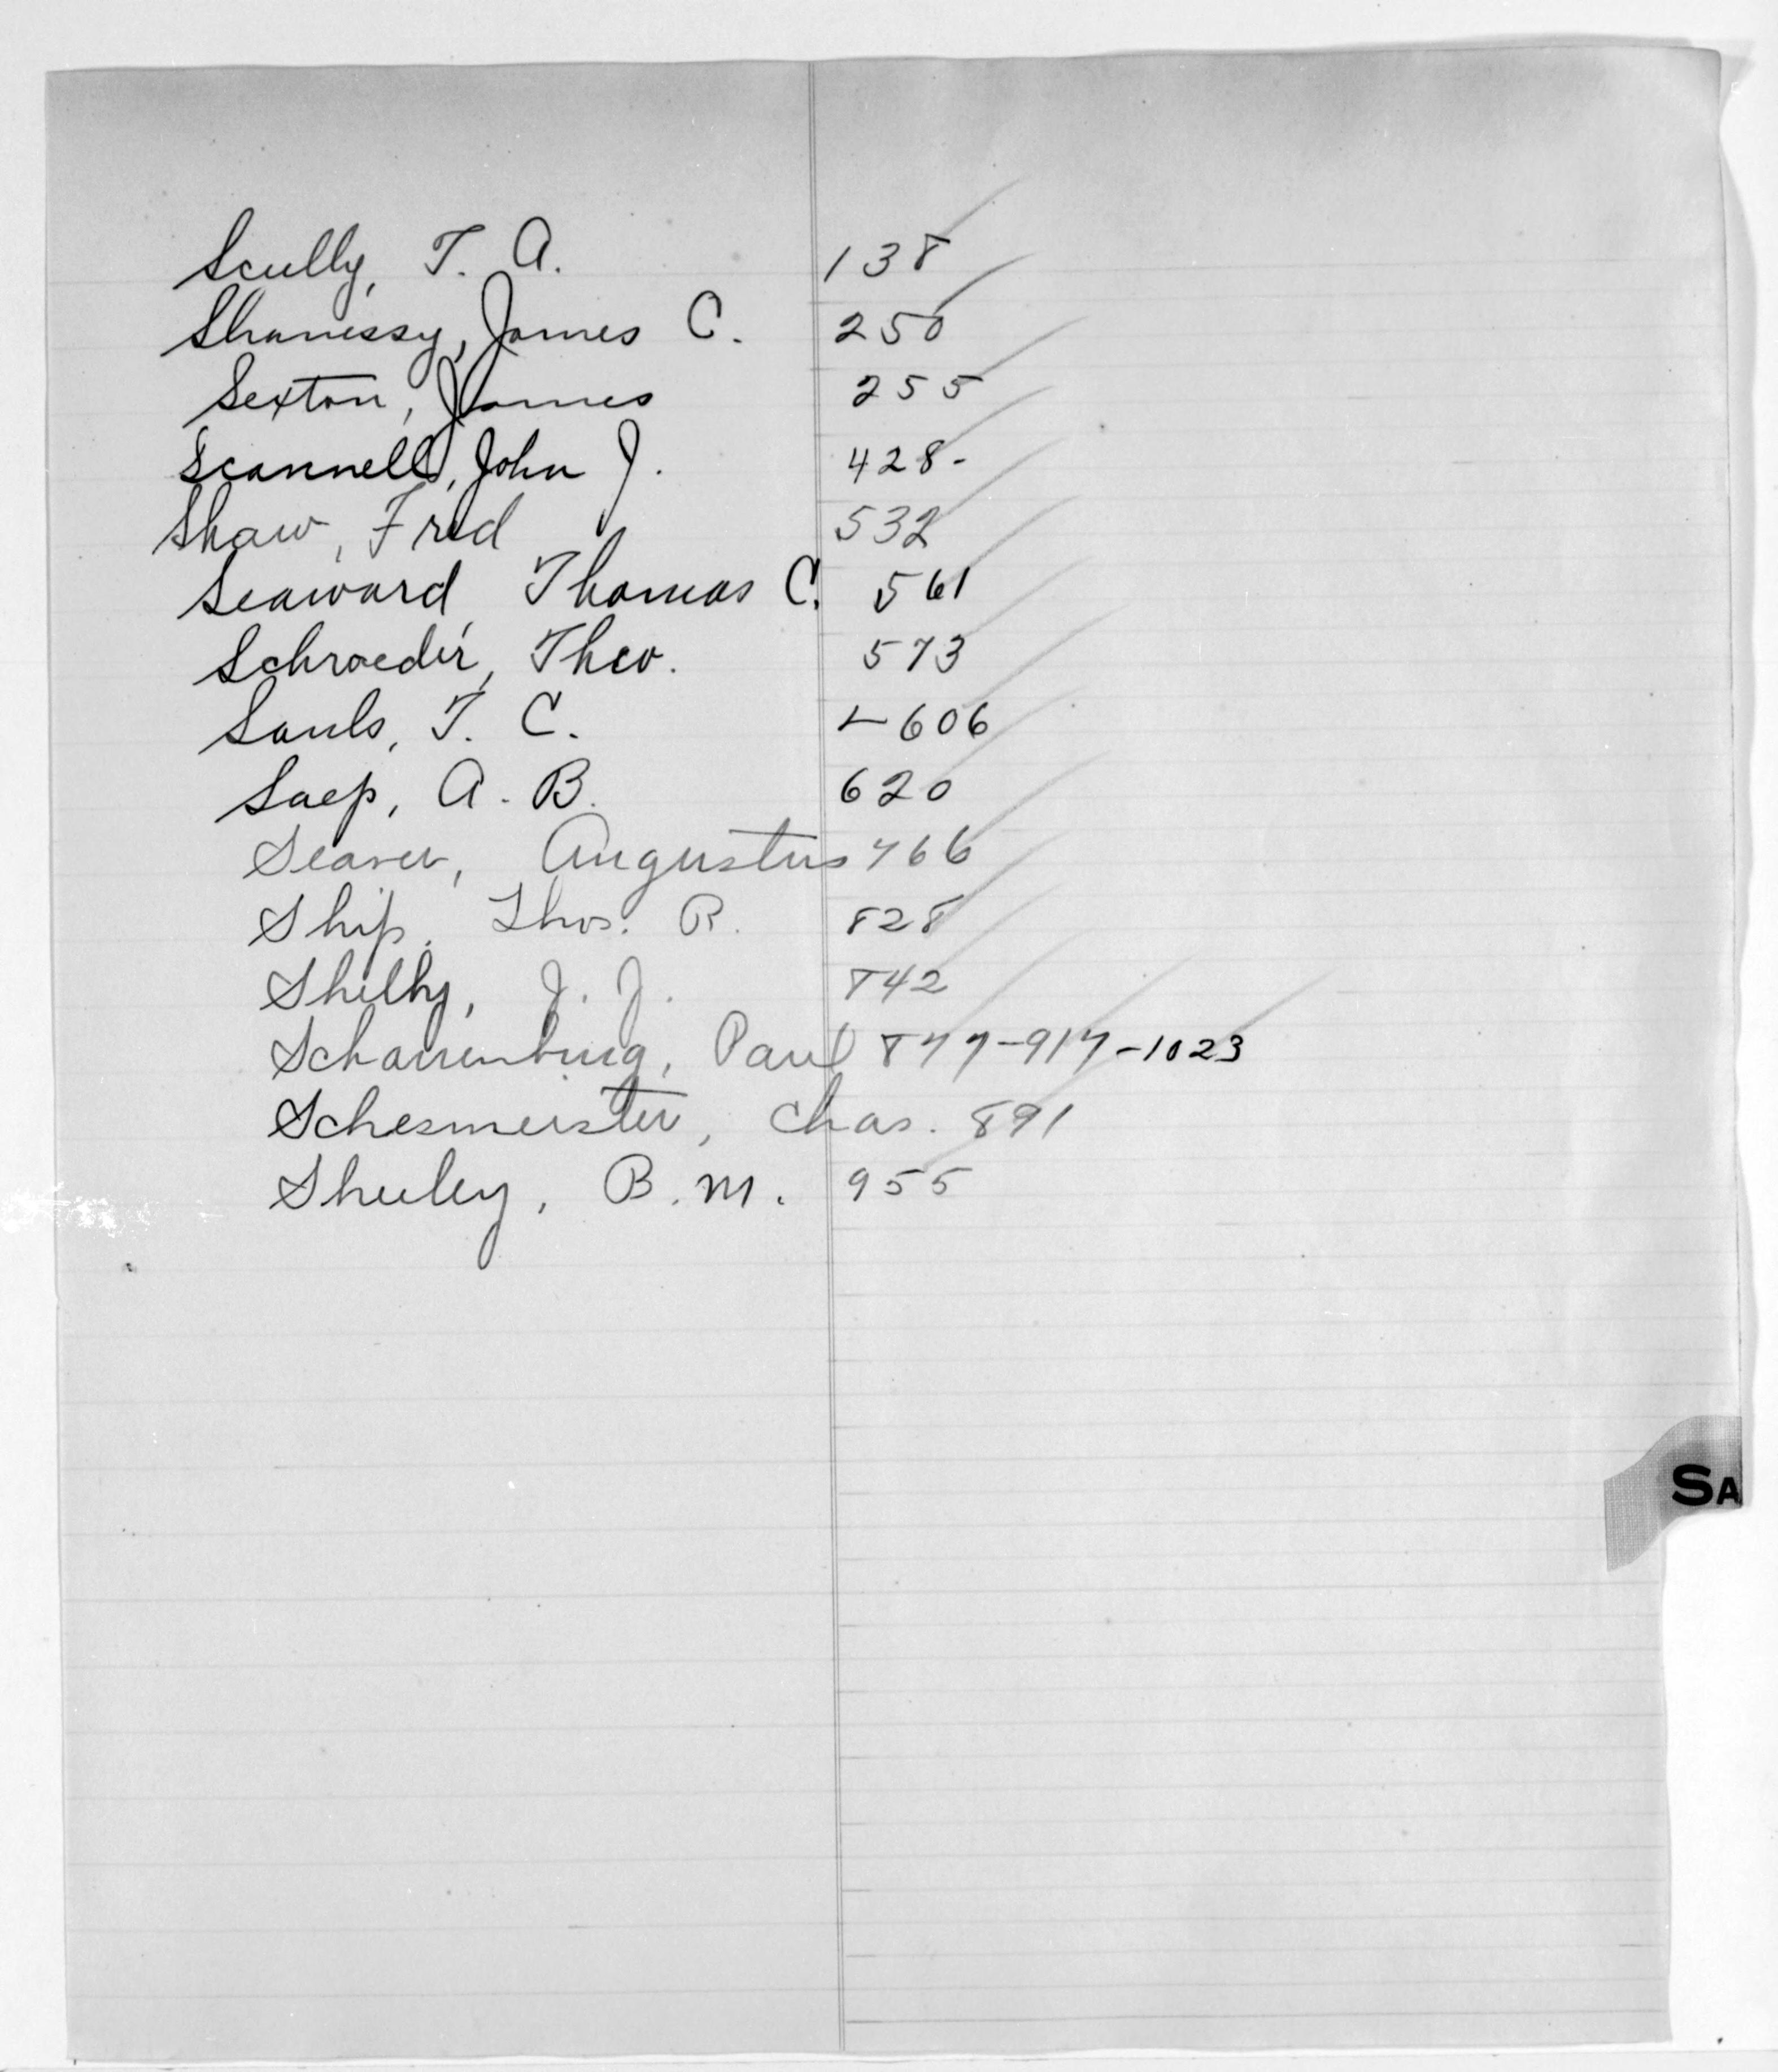 Scully, T. A. 138
Shanessy, James C. 250
Sexton, James 255
Scannell, John J. 428-
Shaw, Fred 532
Seaward, Thomas C. 561
Schroeder, Theo. 573
Sauls, T. C. 606
Saep, A. B. 620
Seaver, Augustus 766
Ship, Thos. R. 828
Shelby, J. J. 842
Scharrenburg, Paul 877-917-1023
Schesmeister, Chas. 891
B. M. 955
SA